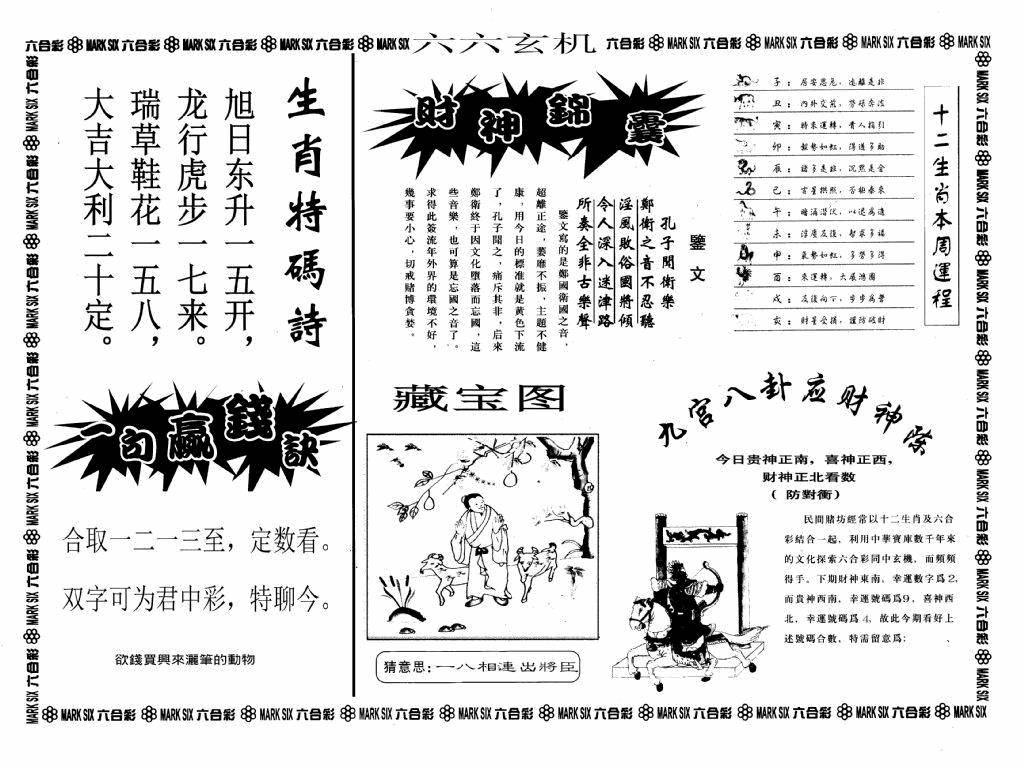 六合彩 MARK SIX 六合彩 MARK SIX 六合彩 MARK SIX 六合彩 MARK SIX 六六玄机 六合彩 MARK SIX 六合彩 MARK SIX 六合彩 MARK SIX 六合彩 MARK SIX
生肖特碼詩
旭日东升一五开，
龙行虎步一七来。
瑞草鞋花一五八，
大吉大利二十定。
一句贏錢訣
合取一二一三至，定数看。
双字可为君中彩，特聊今。
欲錢買興來灑筆的動物
財神錦囊
鑒文
孔子聞衛樂
鄭衛之音不忍聽
淫風敗俗國將傾
令人深入迷津路
所奏全非古樂聲
鑒文寫的是鄭國衛國之音，
超離正途，萎靡不振，主題不健
康，用今日的標准就是黄色下流
了，孔子聞之，痛斥其非，后來
鄭衛終于因文化墮落而忘國，這
些音樂，也可算是忘國之音了。
求得此簽流年外界的環境不好，
幾事要小心，切戒賭博貪婪。
藏宝图
猜意思：一八相連出將臣
十二生肖本周運程
子：居安思危，遠離是非
丑：內外交困，勞碌奔波
寅：時來運轉，貴人指引
卯：
辰：諸多是非，沉默是金
巳：吉星拱照，苦極泰來
午：暗涌潛伏，以退爲進
未：
申：氣勢如虹，多勞多得
酉：來運轉，大展鴻圖
戌：
亥：
九宮八卦应财神
今日贵神正南，喜神正西，
财神正北看数
（防對衝）
民間賭坊經常以十二生肖及六合
彩結合一起，利用中華寶庫數千年來
的文化探索六合彩同中玄機，而頻頻
得手。下期財神東南，幸運數字爲2，
而貴神西南，幸運號碼爲9，喜神西
北，幸運號碼爲4，故此今期看好上
述號碼合數，特需留意爲：
六合彩 MARK SIX 六合彩 MARK SIX 六合彩 MARK SIX 六合彩 MARK SIX 六合彩 MARK SIX 六合彩 MARK SIX 六合彩 MARK SIX 六合彩 MARK SIX 六合彩 MARK SIX